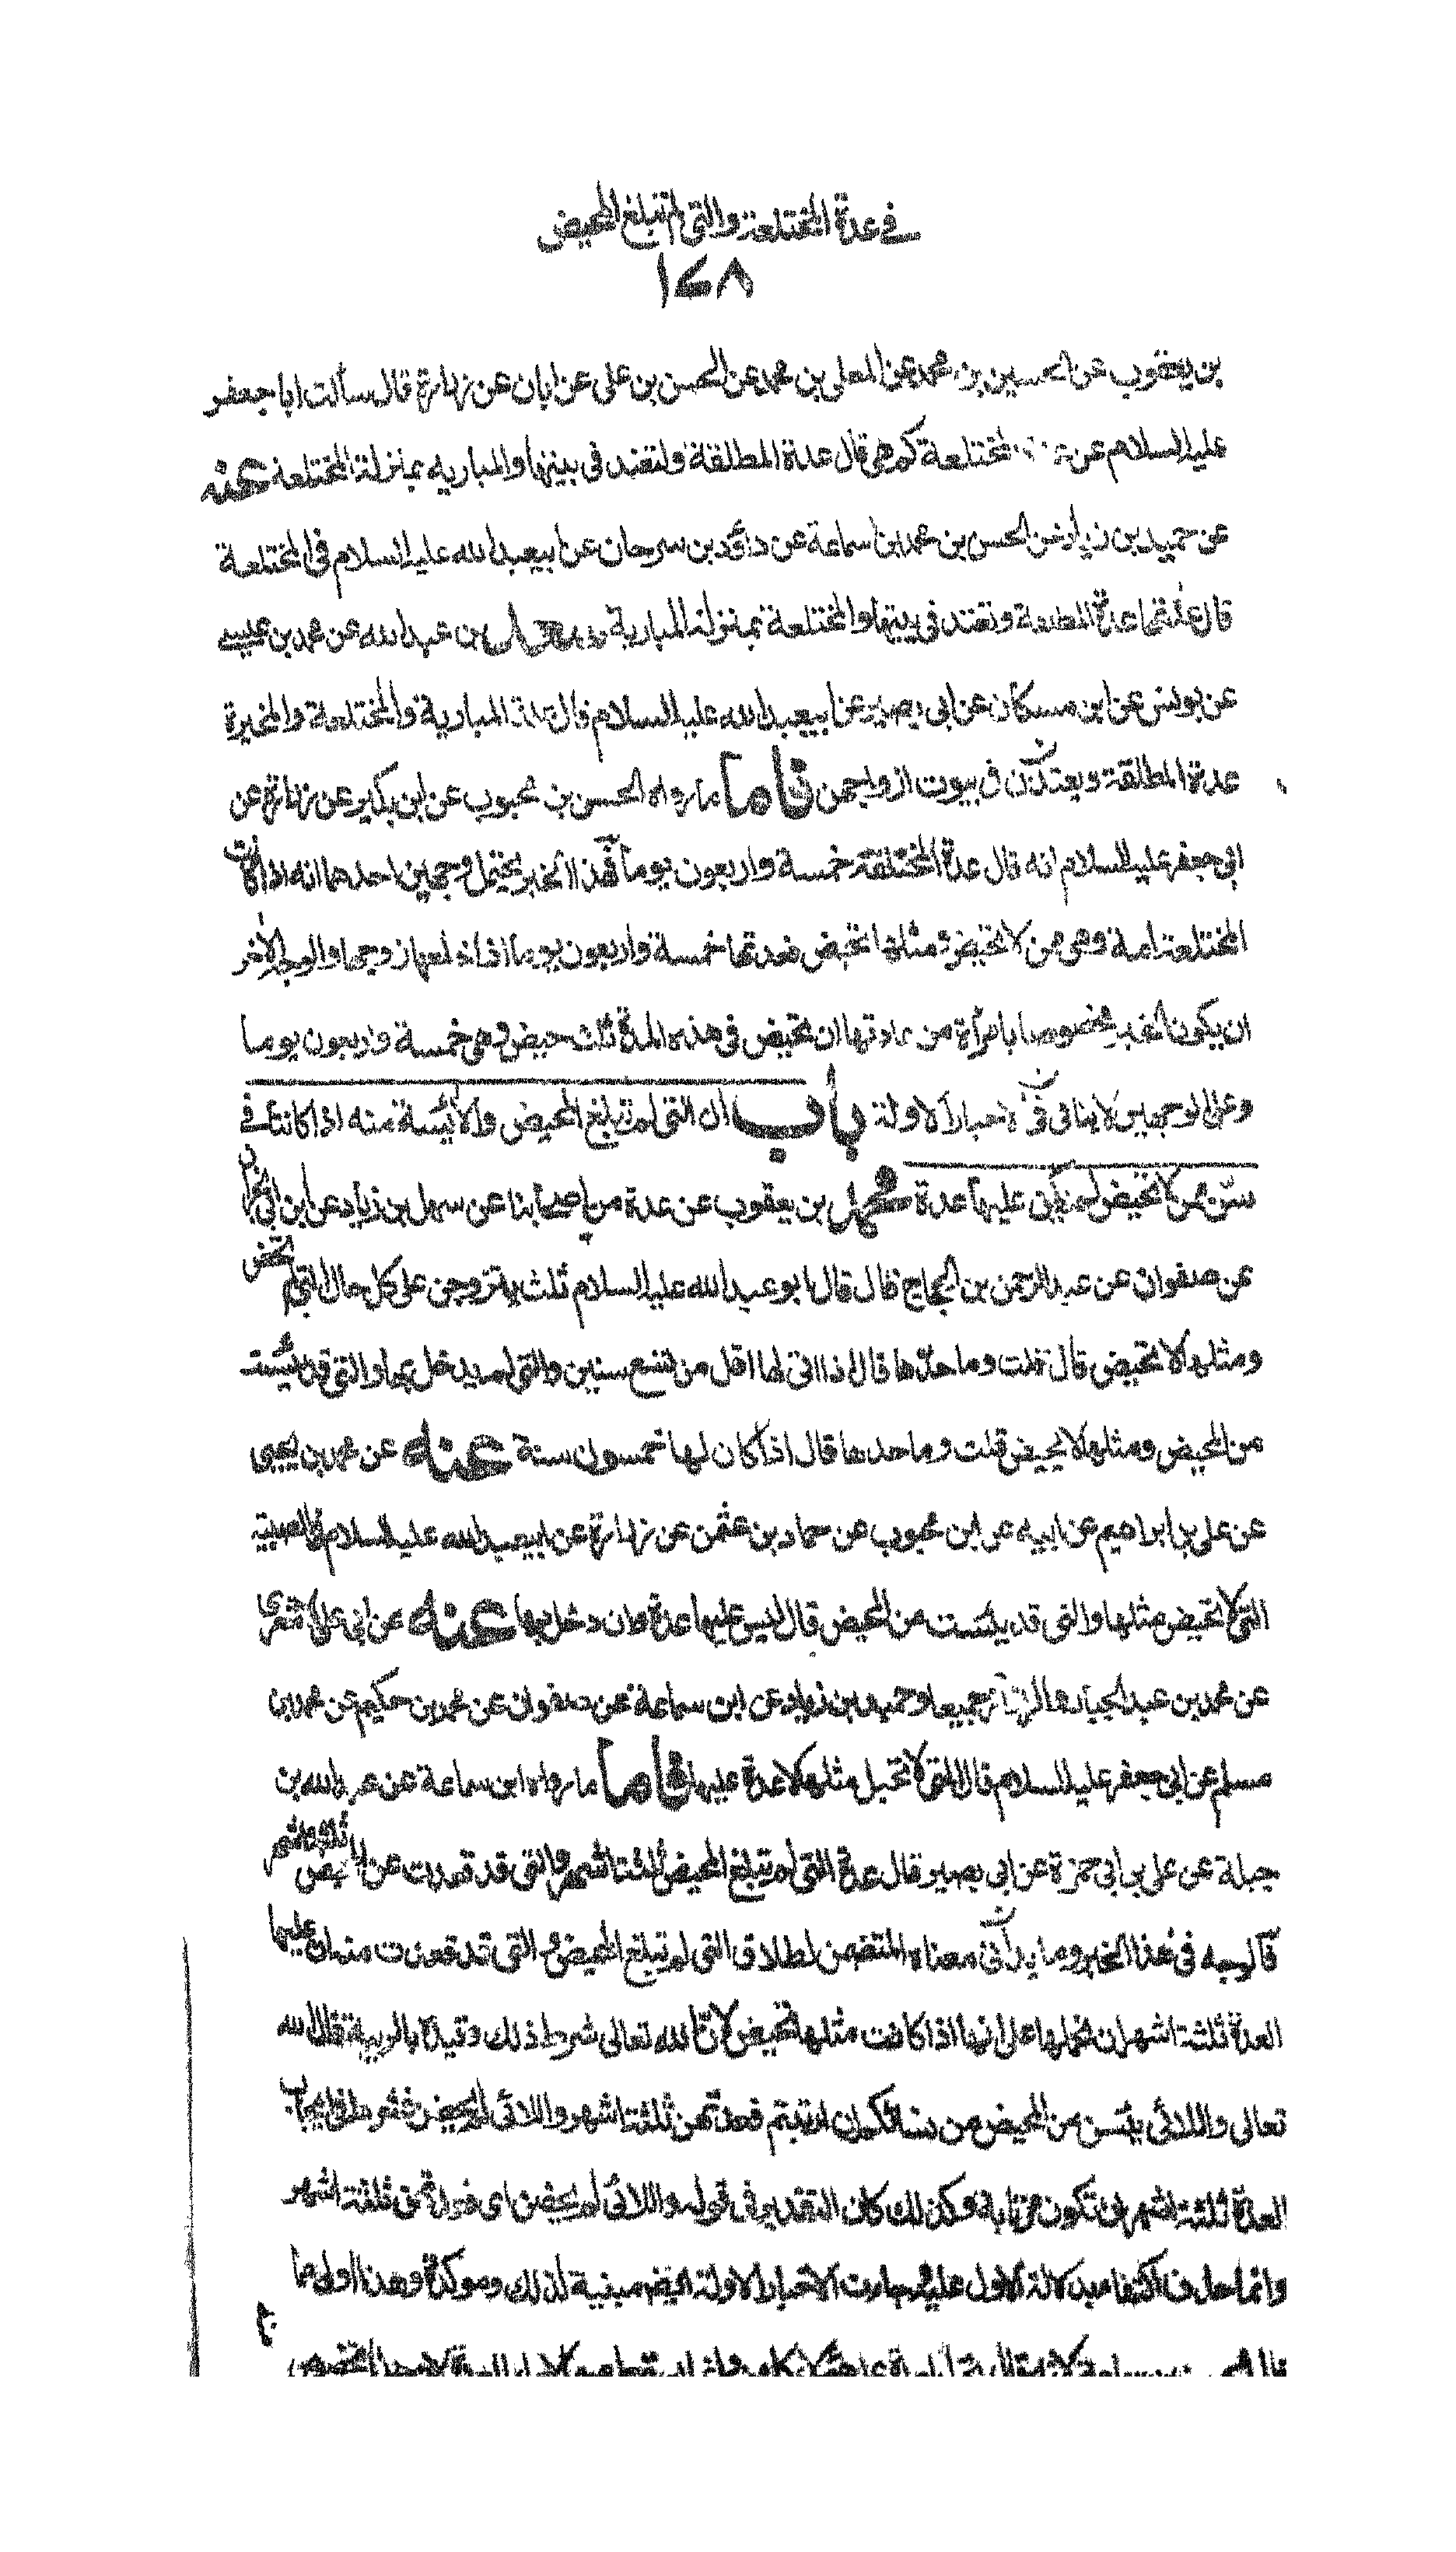 في عدة المختلعة والتى لم تبلغ المحيض
١٤٨
بن يعقوب عن الحسين بن محمد عن المعلى بن محمد عن الحسن بن على عن ابان عن زرارة قال سألت ابا جعفر
عليه السلام عن المختلعة كم هى قال عدة المطلقة ولتعتد فى بيتها والمباريه بمنزلة المختلعة عنه
عن حميد بن زياد عن الحسن بن محمد ابن سماعة عن داؤد بن سرحان عن ابيعبد الله عليه السلام فى المختلعة
قال عدتها عدة المطلقة وتعتد فى بيتها والمختلعة بمنزلة المبارية بن عبد الله عن محمد بن عيسى
عن يونس عن ابن مسكان عن ابى بصير عن ابيعبد الله عليه السلام قال عدة المبارية والمختلعة والمخيرة
عدة المطلقة ويعتددن فى بيوت ازواجهن فاما ما رواه الحسن بن محبوب عن ابن بكير عن زرارة عن
ابى جعفر عليه السلام انه قال عدة المختلعة خمسة واربعون يوما فهذا الخبر يحتمل وجهين احدهما انه اذا كانت
المختلعة امة وهى ممن لا تحيض ومثلها تحيض فعدتها خمسة واربعون يوما اذا خلعها زوجها والوجه الآخر
ان يكون الخبر مخصوصا بامرأة من عادتها ان تحيض فى هذه المدة ثلث حيض وهى خمسة واربعون يوما
وعلى الوجهين لا ينافى الاخبار الاولة باب ان التى لم تبلغ المحيض والآئسة منه اذا كانتا فى
سن من لا تحيض لم يكن عليهما عدة محمد بن يعقوب عن عدة من اصحابنا عن سهل بن زياد عن ابن ابى نجران
عن صفوان عن عبد الرحمن بن الحجاج قال قال ابو عبد الله عليه السلام ثلث يتزوجن على كل حال التى لم تحض
ومثلها لا تحيض قال قلت وما حدها قال اذا اتى لها اقل من تسع سنين والتى لم يدخل بها والتى قد يئست
من المحيض ومثلها لا يحيض قلت وما حدها قال اذا كان لها خمسون سنة عنه عن محمد بن يحيى
عن على بن ابراهيم عن ابيه عن ابن محبوب عن حماد بن عثمن عن زرارة عن ابيعبد الله عليه السلام فى الصبية
التى لا تحيض مثلها والتى قد يئست من المحيض قال ليس عليهما عدة وان دخل بهما عنه عن ابى على الاشعرى
عن محمد بن عبد الجبار والرزاز جميعا وحميد بن زياد عن ابن سماعة عن صفوان عن محمد بن حكيم عن محمد بن
مسلم عن ابى جعفر عليه السلام قال التى لا تحبل مثلها لا عدة عليها فاما ما رواه ابن سماعة عن عبد الله بن
جبلة عن على بن ابى حمزة عن ابى بصير قال عدة التى لم تبلغ المحيض ثلثة اشهر والتى قد قعدت عن المحيض ثلثة اشهر
فالوجه فى هذا الخبر وما يرد فى معناه المتضمن لطلاق التى لم تبلغ المحيض والتى قد قعدت منه ان عليهما
العدة ثلثة اشهر ان نحملها على انها اذا كانت مثلها تحيض لان الله تعالى شرط ذلك وقيده بالريبة قال الله
تعالى واللائى يئسن من المحيض من نسائكم ان ارتبتم فعدتهن ثلثة اشهر واللائى لم يحضن فشرط فى ايجاب
العدة ثلثة اشهر ان تكون مرتابة وكذلك كان التقدير فى قوله واللائى لم يحضن اى فعدتهن ثلثة اشهر
وانما حذف اكتفاء بدلالة الاول عليه جاءت الاخبار الاولة ايضا مبينة لذلك ومؤكدة وهذا اولى مما